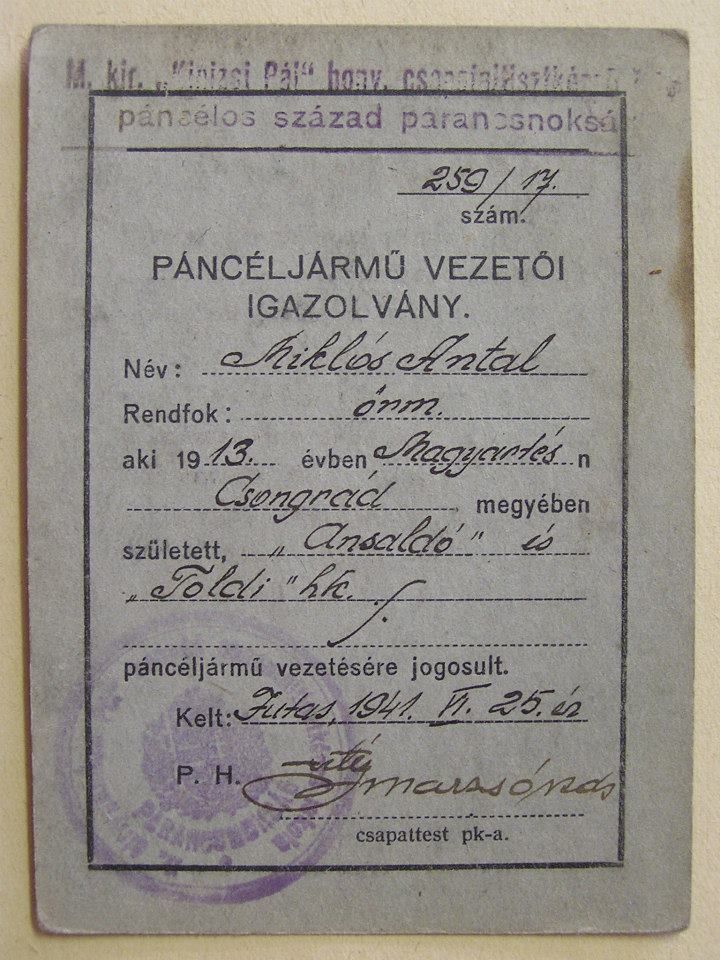 M. kir. „Kinizsi Pál" honv.
páncélos század parancsnokság
259/17.
szám.
PÁNCÉLJÁRMŰ VEZETŐI
IGAZOLVÁNY.
Név: Miklós Antal
Rendfok: őrm.
aki 1913. évben Magyartés n
Csongrád megyében
született, „Ansaldó" és
„Toldi" hk.
páncéljármű vezetésére jogosult.
Kelt: Jutas, 1941. VI. 25. én
P. H.
csapattest pk-a.